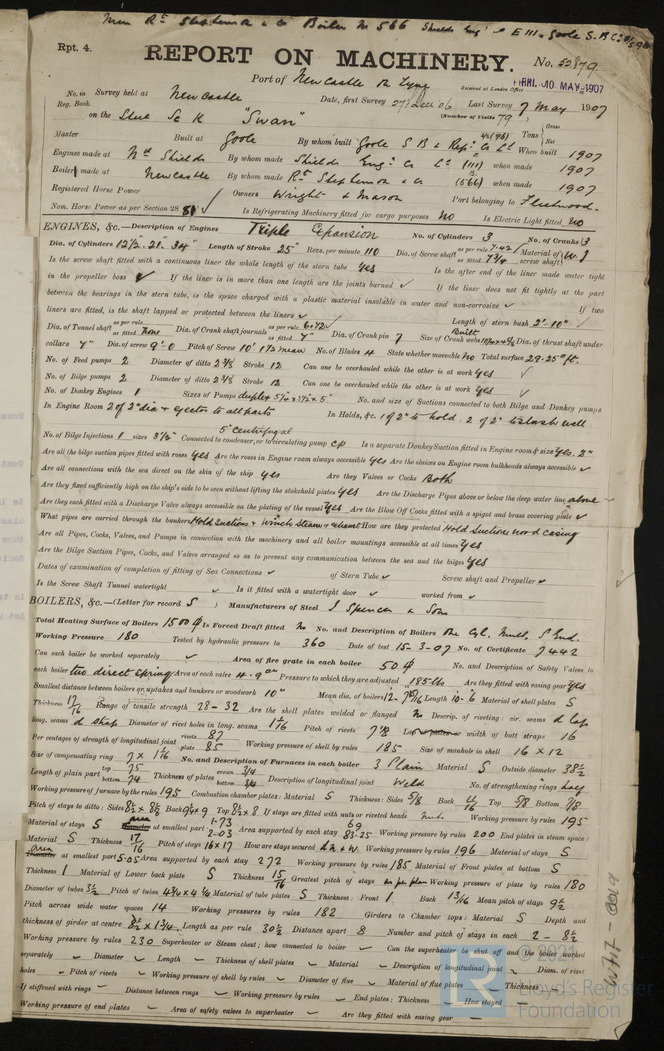 Rpt. 4.
REPORT ON MACHINERY.
No. 52879
Port of Newcastle on Tyne
Received at London Office
FRI. 10 MAY 1907
No. in Reg. Book.
Survey held at Newcastle
Date, first Survey 27 Dec 06 Last Survey 7 May 1907
(Number of Visits 79)
on the Steel Sc K "Swan"
Tons Gross Net
Master Built at Goole By whom built Goole S B & Rep. Co Ld When built 1907
Engines made at Nth Shields By whom made Shields Eng. Co Ld (111) when made 1907
Boiler made at Newcastle By whom made Rt Stephenson & Co (566) when made 1907
Registered Horse Power Owners Wright & Mason Port belonging to Fleetwood
Nom. Horse Power as per Section 28 81 Is Refrigerating Machinery fitted for cargo purposes No Is Electric Light fitted No
ENGINES, &c.—Description of Engines Triple Expansion No. of Cylinders 3 No. of Cranks 3
Dia. of Cylinders 12½. 21. 34" Length of Stroke 25" Revs. per minute 110 Dia. of Screw shaft as per rule 7.42 as fitted 7¾ Material of screw shaft W I
Is the screw shaft fitted with a continuous liner the whole length of the stern tube Yes Is the after end of the liner made water tight
in the propeller boss ✓ If the liner is in more than one length are the joints burned ✓ If the liner does not fit tightly at the part
between the bearings in the stern tube, is the space charged with a plastic material insoluble in water and non-corrosive ✓ If two
liners are fitted, is the shaft lapped or protected between the liners ✓ Length of stern bush 2'-10"
Dia. of Tunnel shaft as per rule as fitted None Dia. of Crank shaft journals as per rule 6.72 as fitted 7" Dia. of Crank pin 7 Size of Crank webs Built Dia. of thrust shaft under
collars 7" Dia. of screw 9'-0 Pitch of Screw 10'. 1½ mean No. of Blades 4 State whether moveable No Total surface 29.25 ft.
No. of Feed pumps 2 Diameter of ditto 2⅜ Stroke 12 Can one be overhauled while the other is at work Yes
No. of Bilge pumps 2 Diameter of ditto 2⅜ Stroke 12 Can one be overhauled while the other is at work Yes
No. of Donkey Engines 1 Sizes of Pumps duplex No. and size of Suctions connected to both Bilge and Donkey pumps
In Engine Room 2 of 2" dia + ejector to all parts In Holds, &c. 1 of 2" to hold. 2 of 2" to slush well
5" Centrifugal
No. of Bilge Injections 1 sizes 3½" Connected to condenser, or to circulating pump CP Is a separate Donkey Suction fitted in Engine room & size Yes. 2"
Are all the bilge suction pipes fitted with roses Yes Are the roses in Engine room always accessible Yes Are the sluices on Engine room bulkheads always accessible ✓
Are all connections with the sea direct on the skin of the ship Yes Are they Valves or Cocks Both
Are they fixed sufficiently high on the ship's side to be seen without lifting the stokehold plates Yes Are the Discharge Pipes above or below the deep water line above
Are they each fitted with a Discharge Valve always accessible on the plating of the vessel Yes Are the Blow Off Cocks fitted with a spigot and brass covering plate ✓
What pipes are carried through the bunkers Hold Suctions & Winch steam & exhaust How are they protected Hold Suctions wood casing
Are all Pipes, Cocks, Valves, and Pumps in connection with the machinery and all boiler mountings accessible at all times Yes
Are the Bilge Suction Pipes, Cocks, and Valves arranged so as to prevent any communication between the sea and the bilges Yes
Dates of examination of completion of fitting of Sea Connections ✓ of Stern Tube ✓ Screw shaft and Propeller ✓
Is the Screw Shaft Tunnel watertight ✓ Is it fitted with a watertight door ✓ worked from ✓
BOILERS, &c.—(Letter for record S) Manufacturers of Steel J Spencer & Sons
Total Heating Surface of Boilers 1500 Is Forced Draft fitted No No. and Description of Boilers One Cyl. Mult. S End.
Working Pressure 180 Tested by hydraulic pressure to 360 Date of test 15-3-07 No. of Certificate 7442
Can each boiler be worked separately ✓ Area of fire grate in each boiler 50 No. and Description of Safety Valves to
each boiler two direct spring Area of each valve 4.9 Pressure to which they are adjusted 185 lb Are they fitted with easing gear Yes
Smallest distance between boilers or uptakes and bunkers or woodwork 10" Mean dia. of boilers Length 10-6 Material of shell plates S
Thickness 17/16 Range of tensile strength 28-32 Are the shell plates welded or flanged No Descrip. of riveting: cir. seams d lap
long. seams d strap Diameter of rivet holes in long. seams 1 1/16 Pitch of rivets 7⅜ width of butt straps 16
Per centages of strength of longitudinal joint rivets 87 plate 85 Working pressure of shell by rules 185 Size of manhole in shell 16 x 12
Size of compensating ring 7 x 1 1/16 No. and Description of Furnaces in each boiler 3 Plain Material S Outside diameter 38½
Length of plain part top 75 bottom 74 Thickness of plates crown ¾ bottom ¾ Description of longitudinal joint Weld No. of strengthening rings
Working pressure of furnace by the rules 195 Combustion chamber plates: Material S Thickness: Sides ⅝ Back 11/16 Top ⅝ Bottom ⅞
Pitch of stays to ditto: Sides 8½ x 8½ Back 9¼ x 9 Top 8½ x 8 If stays are fitted with nuts or riveted heads nuts Working pressure by rules 195
Material of stays S area at smallest part 1.73 2.03 Area supported by each stay 69 83.25 Working pressure by rules 200 End plates in steam space:
Material S Thickness 17/16 Pitch of stays 16 x 17 How are stays secured d n & w. Working pressure by rules 196 Material of stays S
area at smallest part 5.05 Area supported by each stay 272 Working pressure by rules 185 Material of Front plates at bottom S
Thickness 1 Material of Lower back plate S Thickness 15/16 Greatest pitch of stays as per plan Working pressure of plate by rules 180
Diameter of tubes 3½ Pitch of tubes 4¾ x 4¾ Material of tube plates S Thickness: Front 1 Back 13/16 Mean pitch of stays 9½
Pitch across wide water spaces 14 Working pressures by rules 182 Girders to Chamber tops: Material S Depth and
thickness of girder at centre 8½ x 1¾ Length as per rule 30½ Distance apart 8 Number and pitch of stays in each 2 - 8½
Working pressure by rules 230 Superheater or Steam chest; how connected to boiler ✓ Can the superheater be shut off and the boiler worked
separately Diameter Length Thickness of shell plates Material Description of longitudinal joint Diam. of rivet
holes Pitch of rivets Working pressure of shell by rules Diameter of flue Material of flue plates Thickness
If stiffened with rings Distance between rings Working pressure by rules End plates: Thickness How stayed
Working pressure of end plates Area of safety valves to superheater Are they fitted with easing gear
© 2021
LR
Lloyd's Register
Foundation